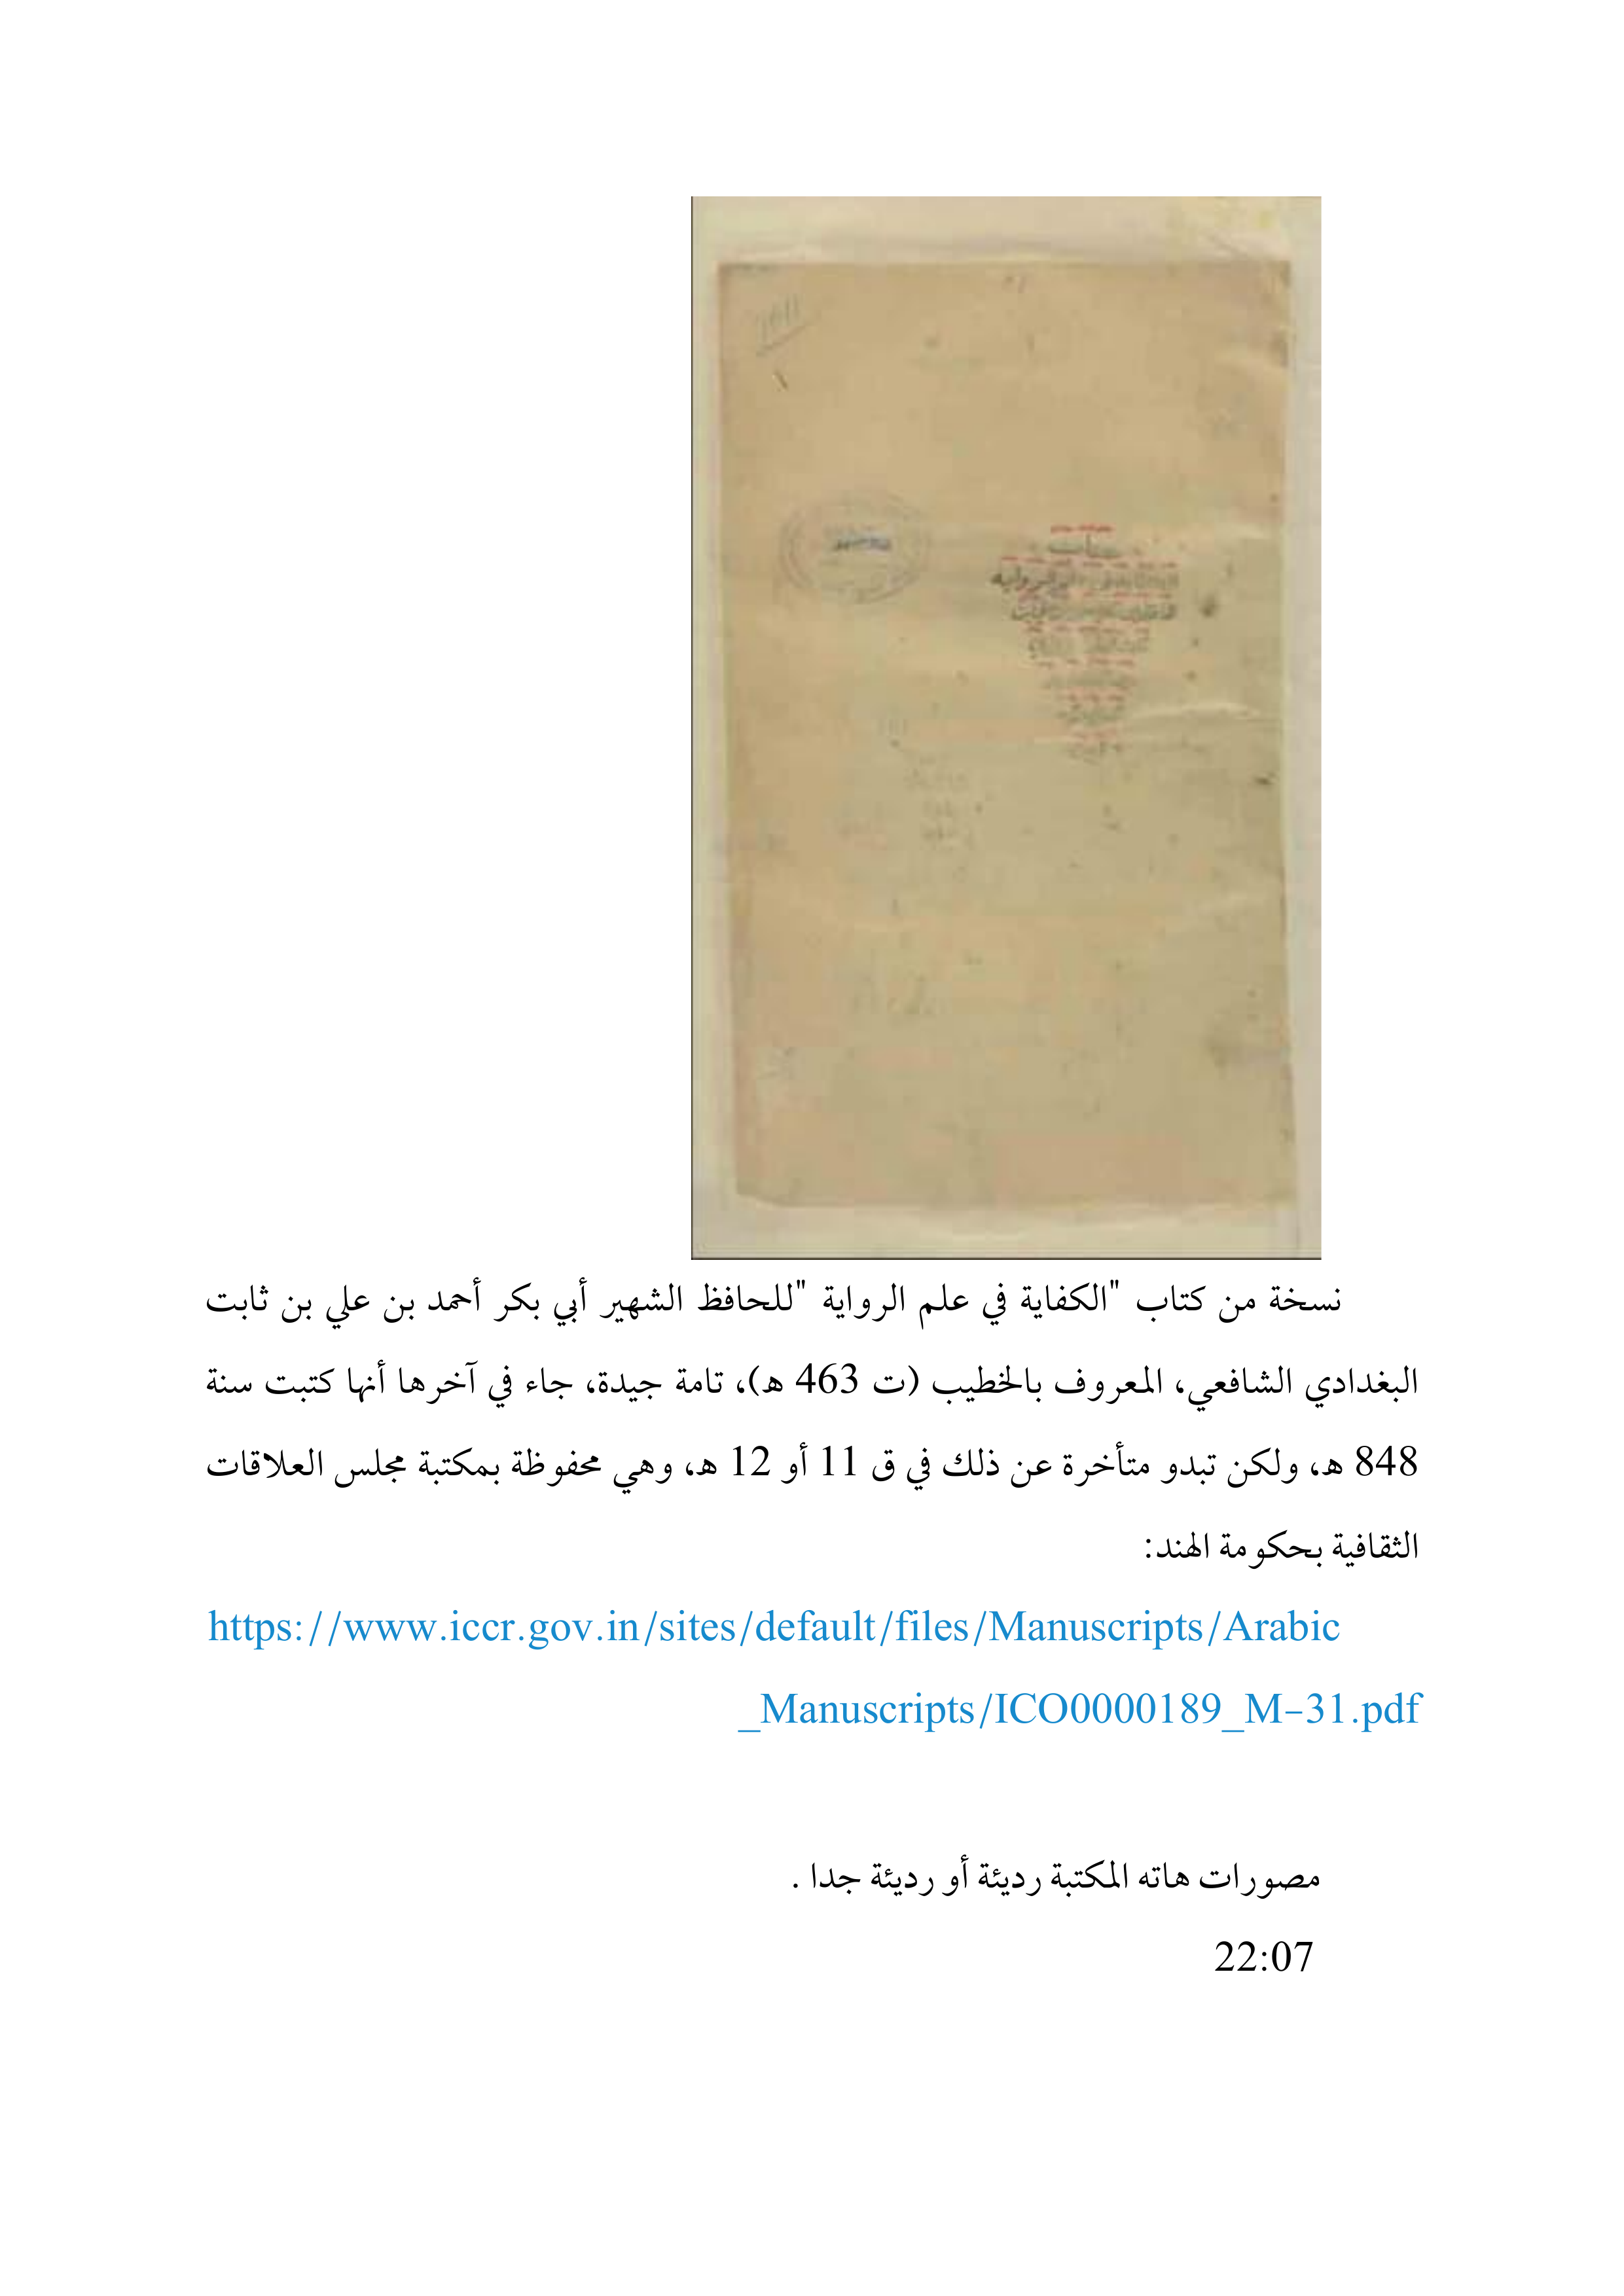 كتاب
نسخة من كتاب "الكفاية في علم الرواية "للحافظ الشهير أبي بكر أحمد بن علي بن ثابت
البغدادي الشافعي، المعروف بالخطيب (ت 463 ه)، تامة جيدة، جاء في آخرها أنها كتبت سنة
848 ه، ولكن تبدو متأخرة عن ذلك في ق 11 أو 12 ه، وهي محفوظة بمكتبة مجلس العلاقات
الثقافية بحكومة الهند:
https://www.iccr.gov.in/sites/default/files/Manuscripts/Arabic
_Manuscripts/ICO0000189_M-31.pdf
مصورات هاته المكتبة رديئة أو رديئة جدا .
22:07